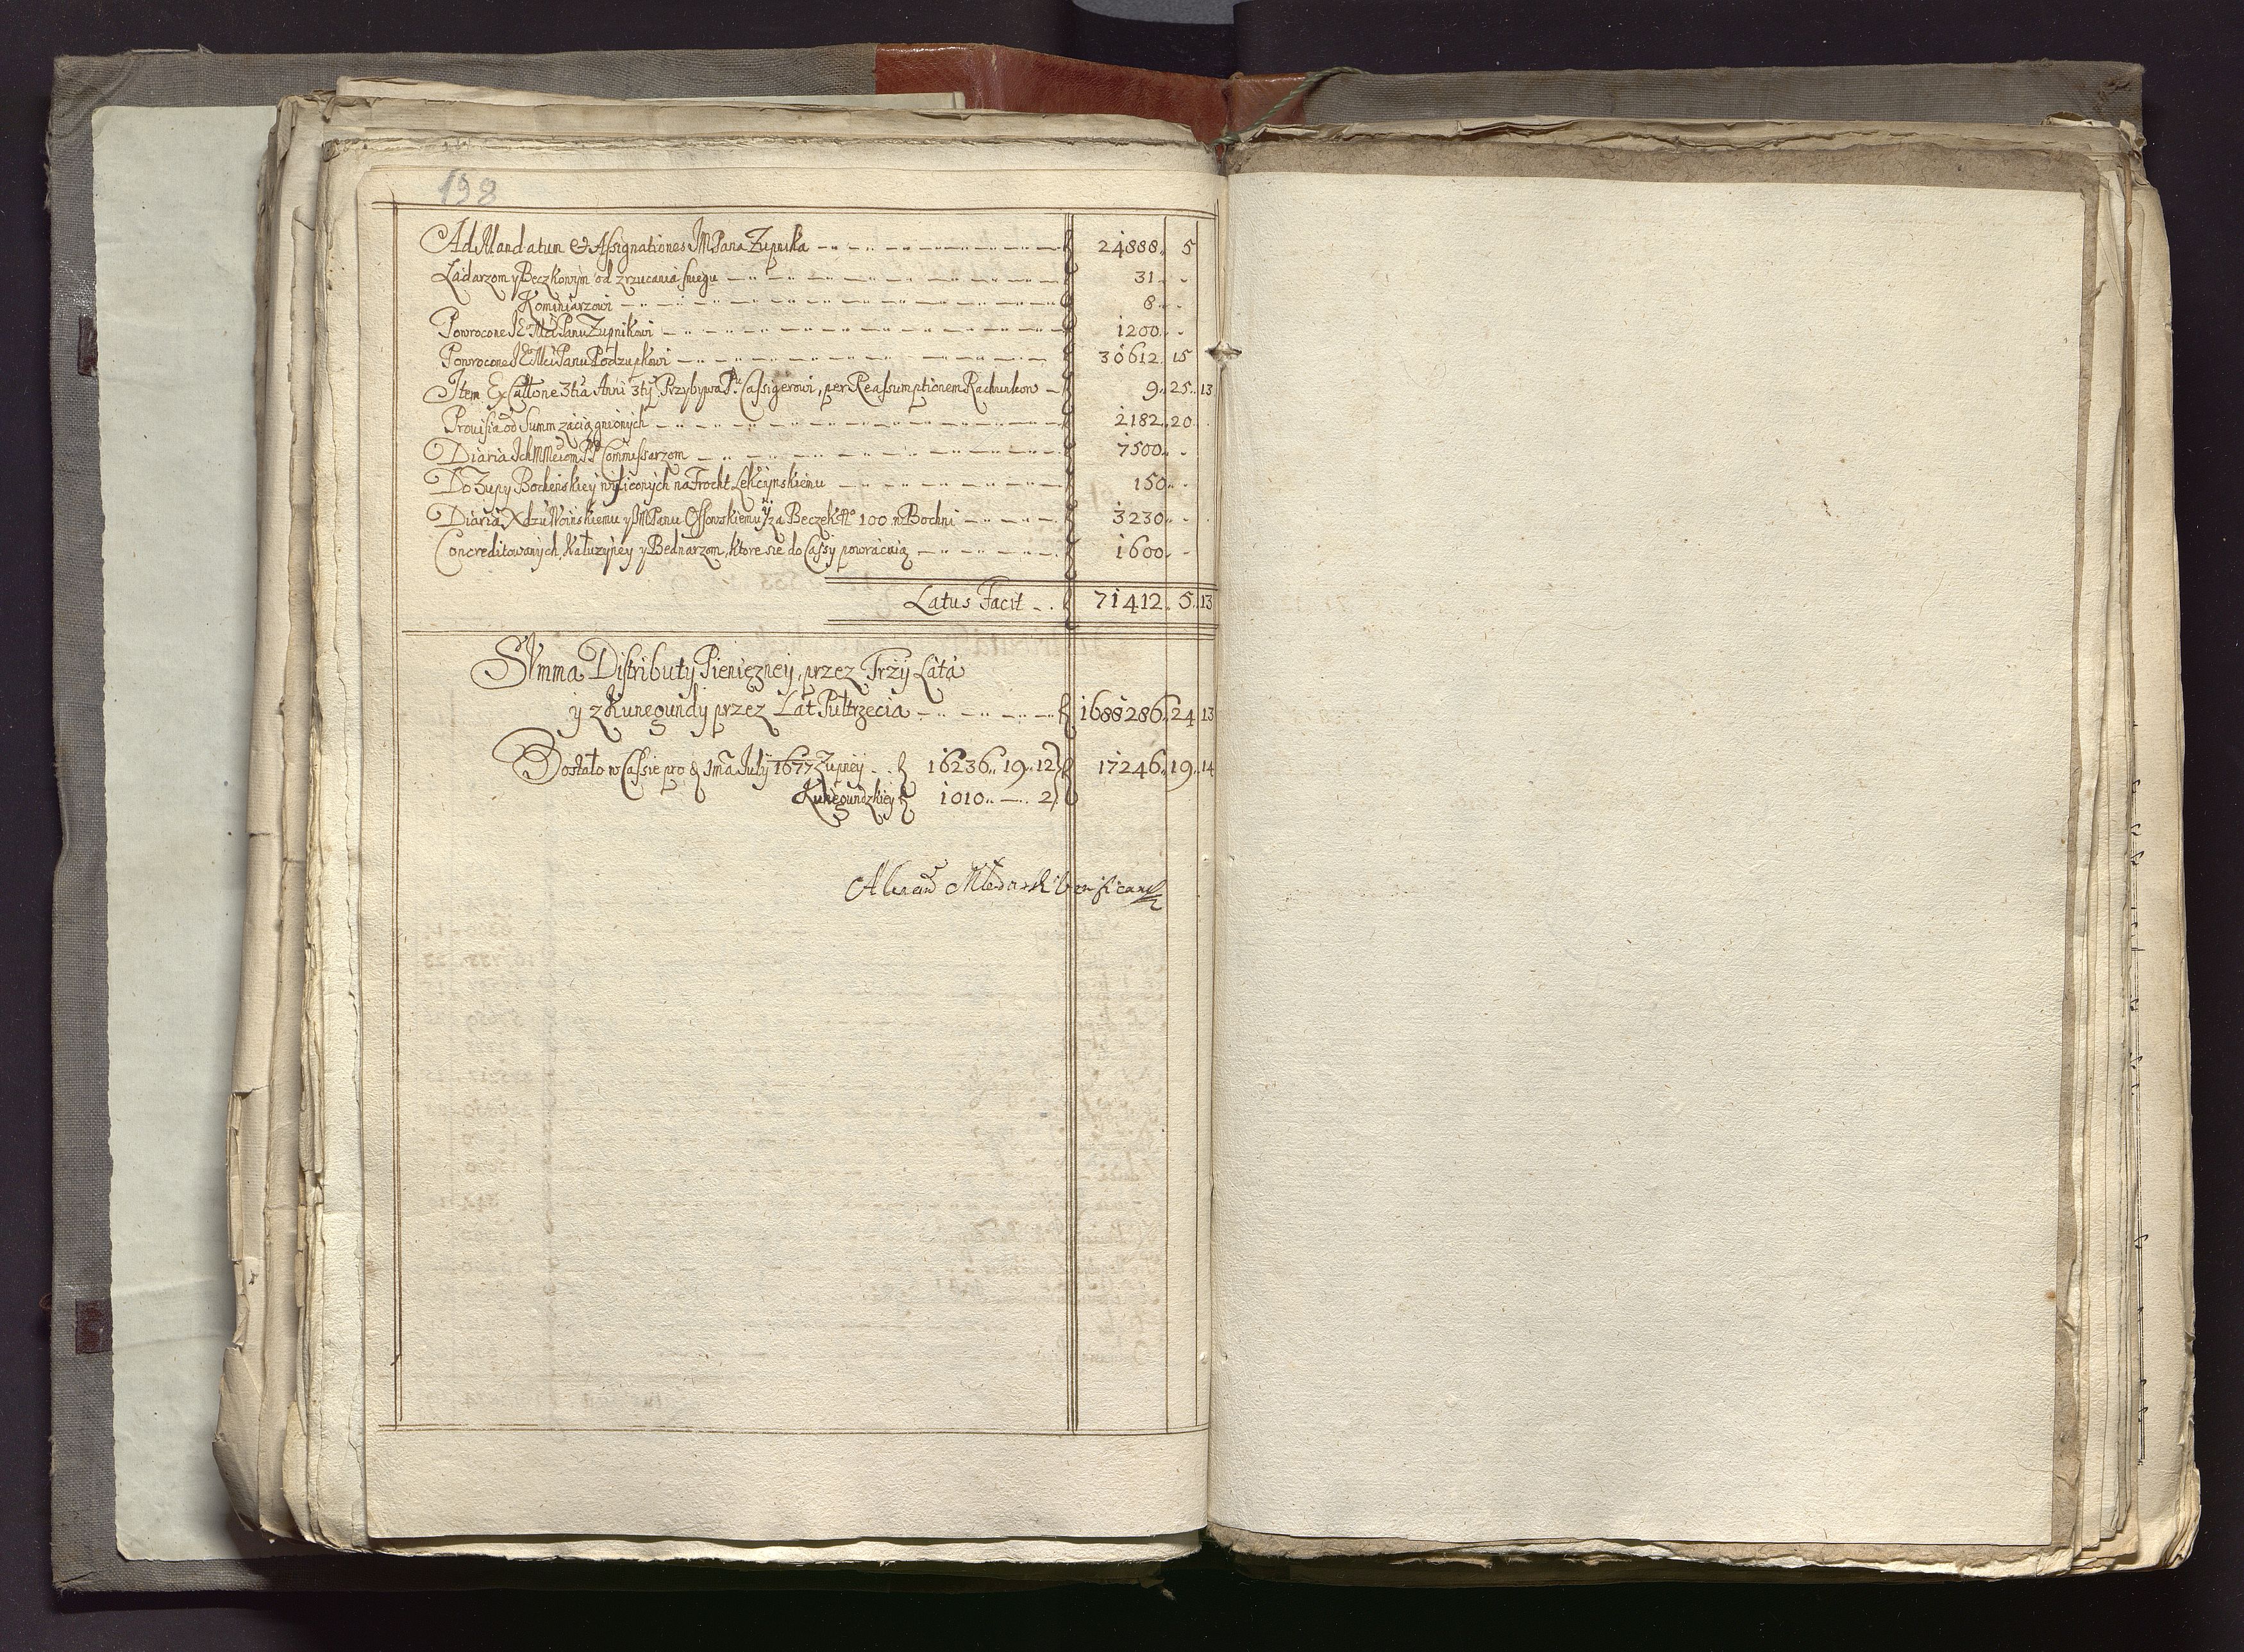 198
Ad Mandatum & Assignationes JM Pana Zupnika f 24888. 5
Ładarzom y Beczkowym od zrzucania sniegu f 31. -
Kominiarzowi f 8. -
Powrocone JE Mci Panu Zupnikowi f 1200. -
Powrocone JE Mci Panu Podzupkowi f 30612. 15
Item Ex Calcone 3tia Anni 3tij Przybywa P. Cassigerowi, per Reassumptionem Rachunkow f 9. 25. 13
Prowisia od Summ zaciągnionych f 2182. 20
Diaria Ich MMciom PP Commissarzom f 7500. -
Do Zupy Bochenskiey wyliconych na Frocht Lekcynskiemu f 150. -
Diaria Xdzu Woinskiemu y JM Panu Ossowskiemu y za Beczek No 100. w Bochni f 3230. -
Concreditowanych Kałuzyney y Bednarzom, ktore sie do Cassy powracaią f 1600. -
Latus Facit f 71412. 5. 13
Summa Distributy Pienięzney, przez Trzy Lata
y z Kunegundy przez Lat Pułtrzecia f 1688286. 24. 13
Dostało w Cassie pro d 1ma July 1677 Zupney f 16236. 19. 12 f 17246. 19. 14
Kunegundzkiey f 1010. — . 2